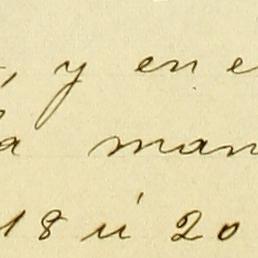 , y en e
a man
18 ú 20